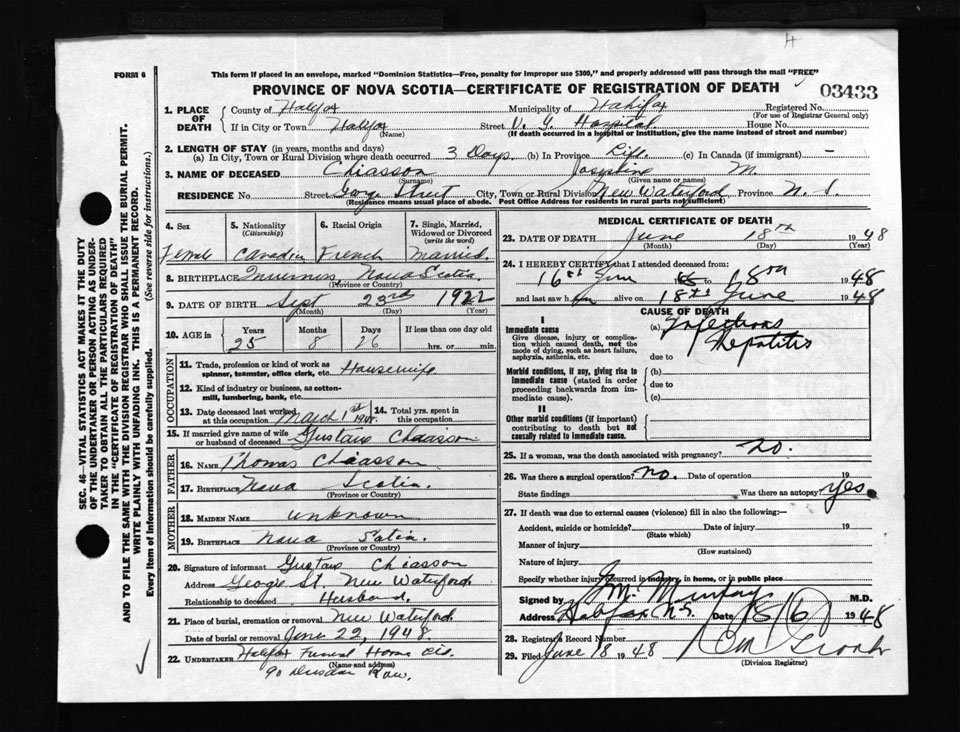 FORM 6
This form if placed in an envelope, marked "Dominion Statistics—Free, penalty for improper use $300," and properly addressed will pass through the mail "FREE"
PROVINCE OF NOVA SCOTIA—CERTIFICATE OF REGISTRATION OF DEATH
03433
1. PLACE OF DEATH
County of Halifax Municipality of Halifax Registered No.
(For use of Registrar General only)
If in City or Town Halifax Street V. G. Hospital House No.
(Name) (If death occurred in a hospital or institution, give the name instead of street and number)
2. LENGTH OF STAY (in years, months and days)
(a) In City, Town or Rural Division where death occurred 3 Days. (b) In Province Life. (c) In Canada (if immigrant) –
3. NAME OF DECEASED Chiasson Josephine M.
(Surname) (Given name or names)
RESIDENCE No. Street George Street City, Town or Rural Division New Waterford Province N. S.
(Residence means usual place of abode. Post Office Address for residents in rural parts not sufficient)
4. Sex
5. Nationality (Citizenship)
6. Racial Origin
7. Single, Married, Widowed or Divorced (write the word)
Female Canadian French Married.
8. BIRTHPLACE Inverness Nova Scotia.
(Province or Country)
9. DATE OF BIRTH Sept 23rd 1922
(Month) (Day) (Year)
10. AGE in Years Months Days If less than one day old
25 8 26 hrs. or min.
OCCUPATION
11. Trade, profession or kind of work as spinner, teamster, office clerk, etc. Housewife
12. Kind of industry or business, as cotton-mill, lumbering, bank, etc.
13. Date deceased last worked at this occupation March 1st 1948.
14. Total yrs. spent in this occupation
15. If married give name of wife or husband of deceased Gustave Chiasson
FATHER
16. NAME Thomas Chiasson
17. BIRTHPLACE Nova Scotia.
(Province or Country)
MOTHER
18. MAIDEN NAME unknown
19. BIRTHPLACE Nova Scotia.
(Province or Country)
20. Signature of informant Gustave Chiasson
Address George St. New Waterford
Relationship to deceased Husband.
21. Place of burial, cremation or removal New Waterford
Date of burial or removal June 22, 1948
22. UNDERTAKER Halifax Funeral Home
(Name and address)
90 Row.
MEDICAL CERTIFICATE OF DEATH
23. DATE OF DEATH June 18th 1948
(Month) (Day) (Year)
24. I HEREBY CERTIFY that I attended deceased from:
16th June to 18th 1948
and last saw h alive on 18th June 1948
CAUSE OF DEATH
I
Immediate cause
Give disease, injury or complication which caused death, not the mode of dying, such as heart failure, asphyxia, asthenia, etc.
(a) Infectious Hepatitis
due to
Morbid conditions, if any, giving rise to immediate cause (stated in order proceeding backwards from immediate cause).
(b)
due to
(c)
II
Other morbid conditions (if important) contributing to death but not causally related to immediate cause.
25. If a woman, was the death associated with pregnancy? No.
26. Was there a surgical operation? No. Date of operation 19
State findings Was there an autopsy? yes.
27. If death was due to external causes (violence) fill in also the following:—
Accident, suicide or homicide? Date of injury 19
(State which)
Manner of injury
(How sustained)
Nature of injury
Specify whether injury occurred in industry, in home, or in public place
Signed by M.D.
Halifax N.S. Date 18/6 1948
28. Registrar's Record Number
29. Filed June 18 1948
(Division Registrar)
SEC. 46—VITAL STATISTICS ACT MAKES IT THE DUTY
OF THE UNDERTAKER OR PERSON ACTING AS UNDER-
TAKER TO OBTAIN ALL THE PARTICULARS REQUIRED
IN THE "CERTIFICATE OF REGISTRATION OF DEATH"
AND TO FILE THE SAME WITH THE DIVISION REGISTRAR WHO SHALL ISSUE THE BURIAL PERMIT.
WRITE PLAINLY WITH UNFADING INK. THIS IS A PERMANENT RECORD.
Every item of Information should be carefully supplied. (See reverse side for instructions.)